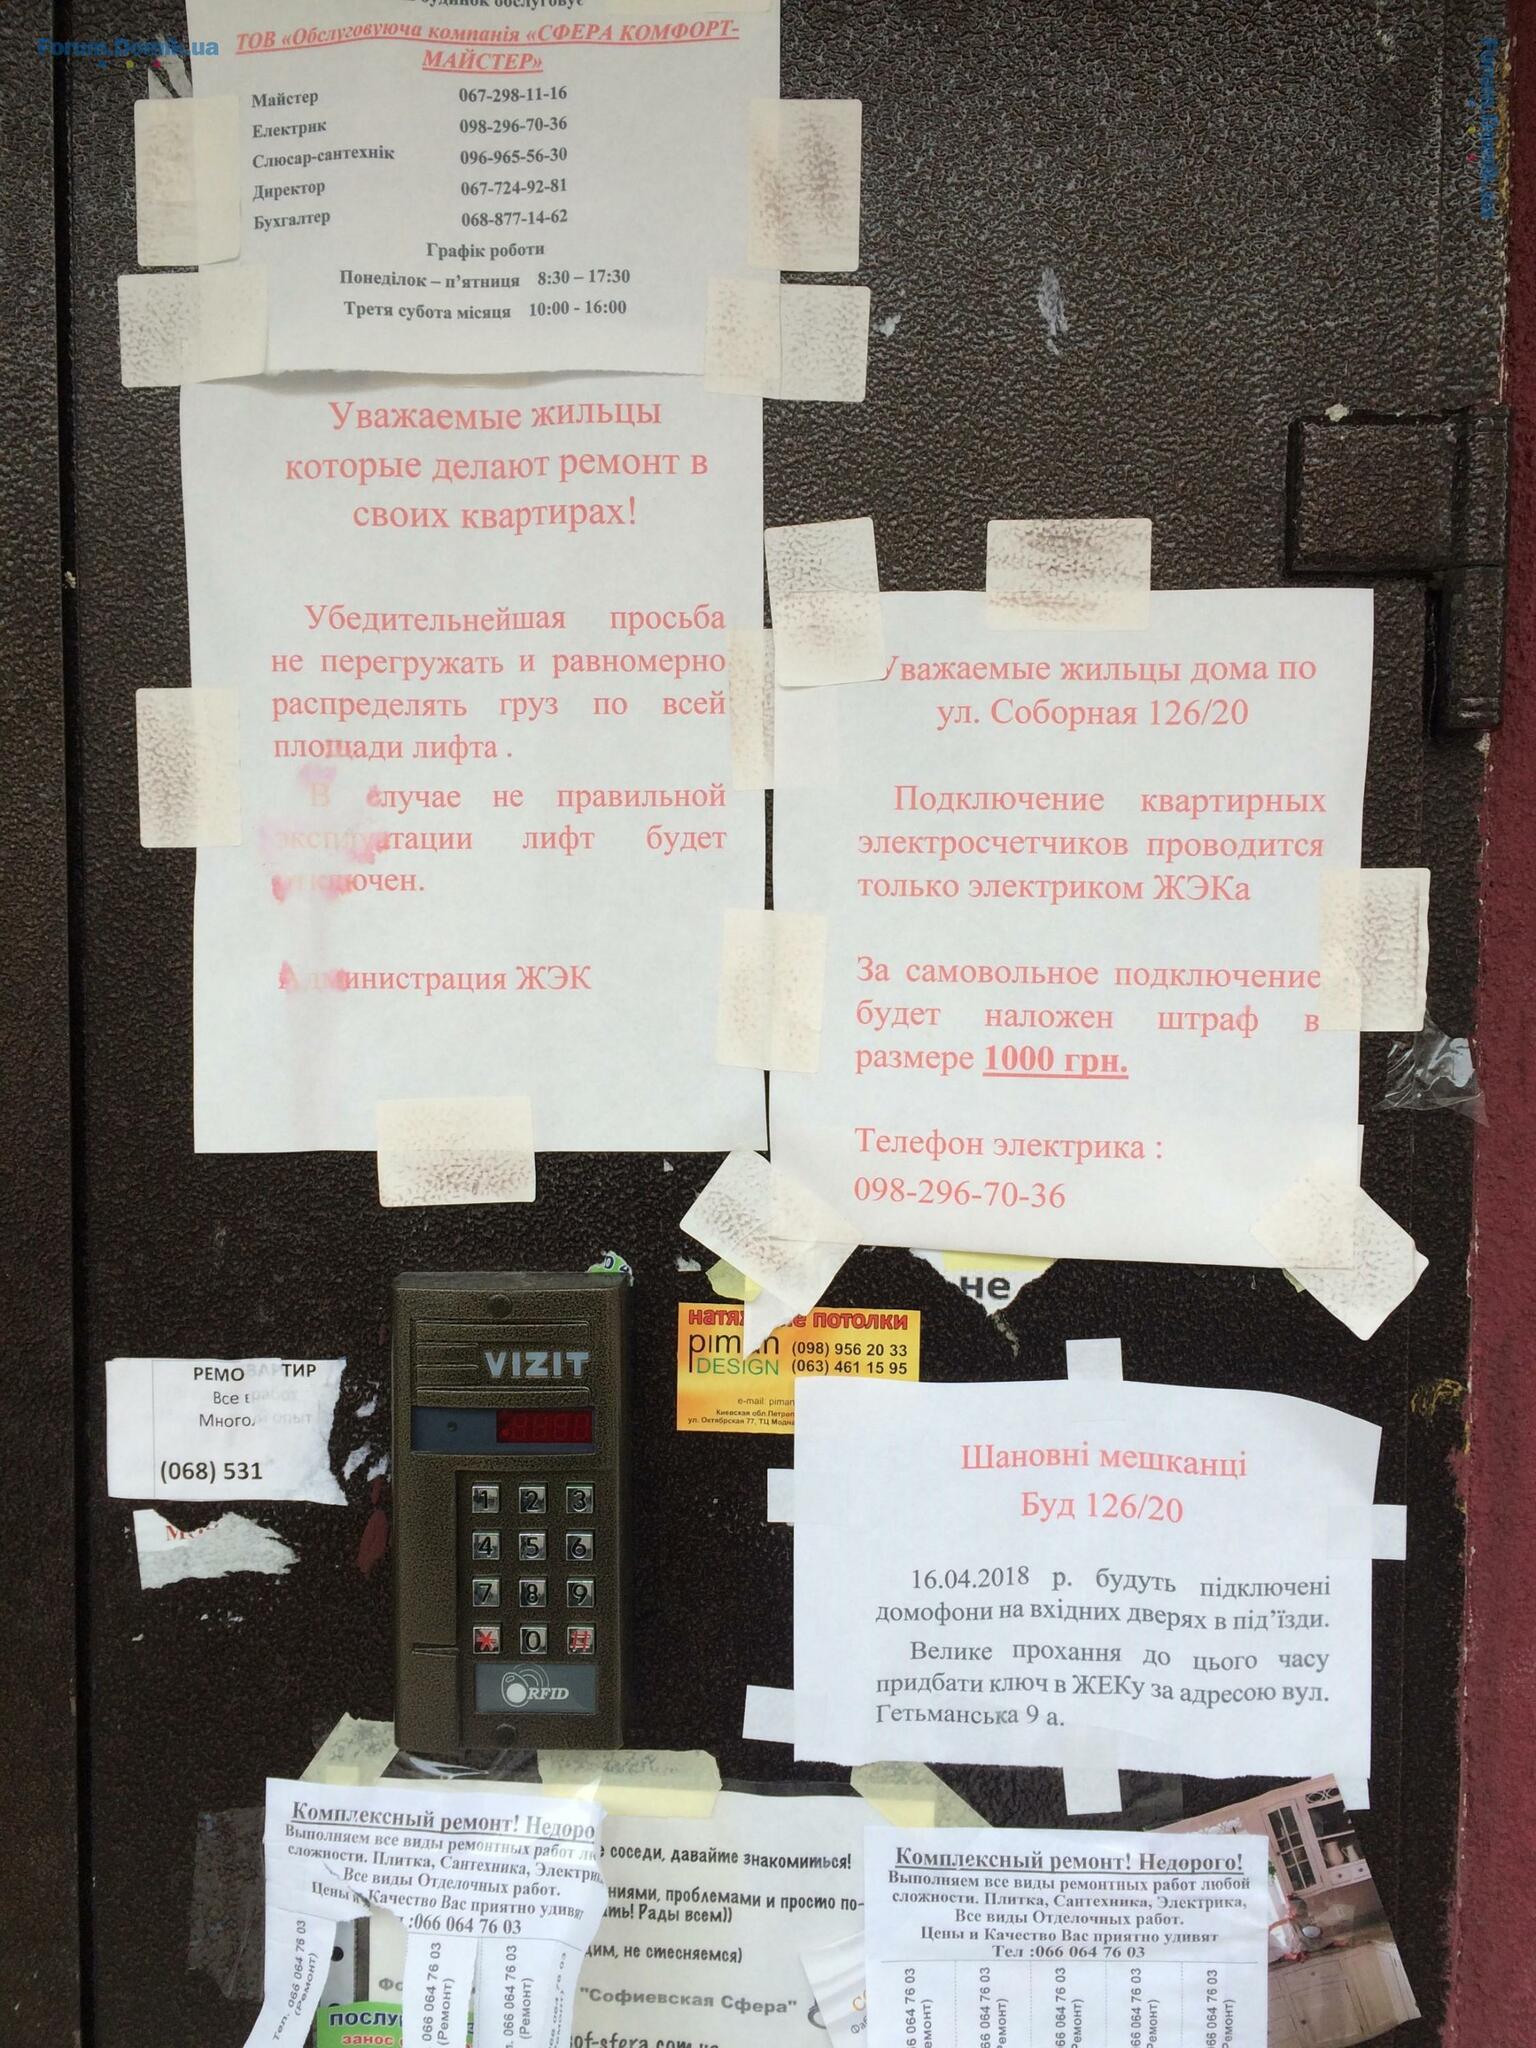 Forum.Domik.ua
будинок обслуговує
ТОВ «Обслуговуюча компанія «СФЕРА КОМФОРТ-
МАЙСТЕР»
Майстер 067-298-11-16
Електрик 098-296-70-36
Слюсар-сантехнік 096-965-56-30
Директор 067-724-92-81
Бухгалтер 068-877-14-62
Графік роботи
Понеділок – п’ятниця 8:30 – 17:30
Третя субота місяця 10:00 - 16:00
Уважаемые жильцы
которые делают ремонт в
своих квартирах!
Убедительнейшая просьба
не перегружать и равномерно
распределять груз по всей
площади лифта .
В случае не правильной
эксплуатации лифт будет
отключен.
Администрация ЖЭК
Уважаемые жильцы дома по
ул. Соборная 126/20
Подключение квартирных
электросчетчиков проводится
только электриком ЖЭКа
За самовольное подключение
будет наложен штраф в
размере 1000 грн.
Телефон электрика :
098-296-70-36
не
натяжные потолки
piman
DESIGN
(098) 956 20 33
(063) 461 15 95
e-mail: piman
Киевская обл.Петроп
ул. Октябрская 77, ТЦ Модча
VIZIT
1 2 3
4 5 6
7 8 9
* 0 #
RFID
РЕМО ТИР
Все
Много
(068) 531
Шановні мешканці
Буд 126/20
16.04.2018 р. будуть підключені
домофони на вхідних дверях в під’їзди.
Велике прохання до цього часу
придбати ключ в ЖЕКу за адресою вул.
Гетьманська 9 а.
Комплексный ремонт! Недоро
Выполняем все виды ремонтных работ лю
сложности. Плитка, Сантехника, Электри
Все виды Отделочных работ.
Цены и Качество Вас приятно удивят
:066 064 76 03
Тел. 066 064 76 03
(Ремонт)
066 064 76 03
(Ремонт)
066 064 76 03
(Ремонт)
е соседи, давайте знакомиться!
ниями, проблемами и просто по-
ть! Рады всем))
дим, не стесняемся)
"Софиевская Сфера"
sof-sfera.com.ua
ПОСЛУ
занос
Комплексный ремонт! Недорого!
Выполняем все виды ремонтных работ любой
сложности. Плитка, Сантехника, Электрика,
Все виды Отделочных работ.
Цены и Качество Вас приятно удивят
Тел :066 064 76 03
66 064 76 03
емонт)
66 064 76 03
емонт)
66 064 76 03
Ремонт)
66 064 76 03
Ремонт)
66 064 76 03
емонт)